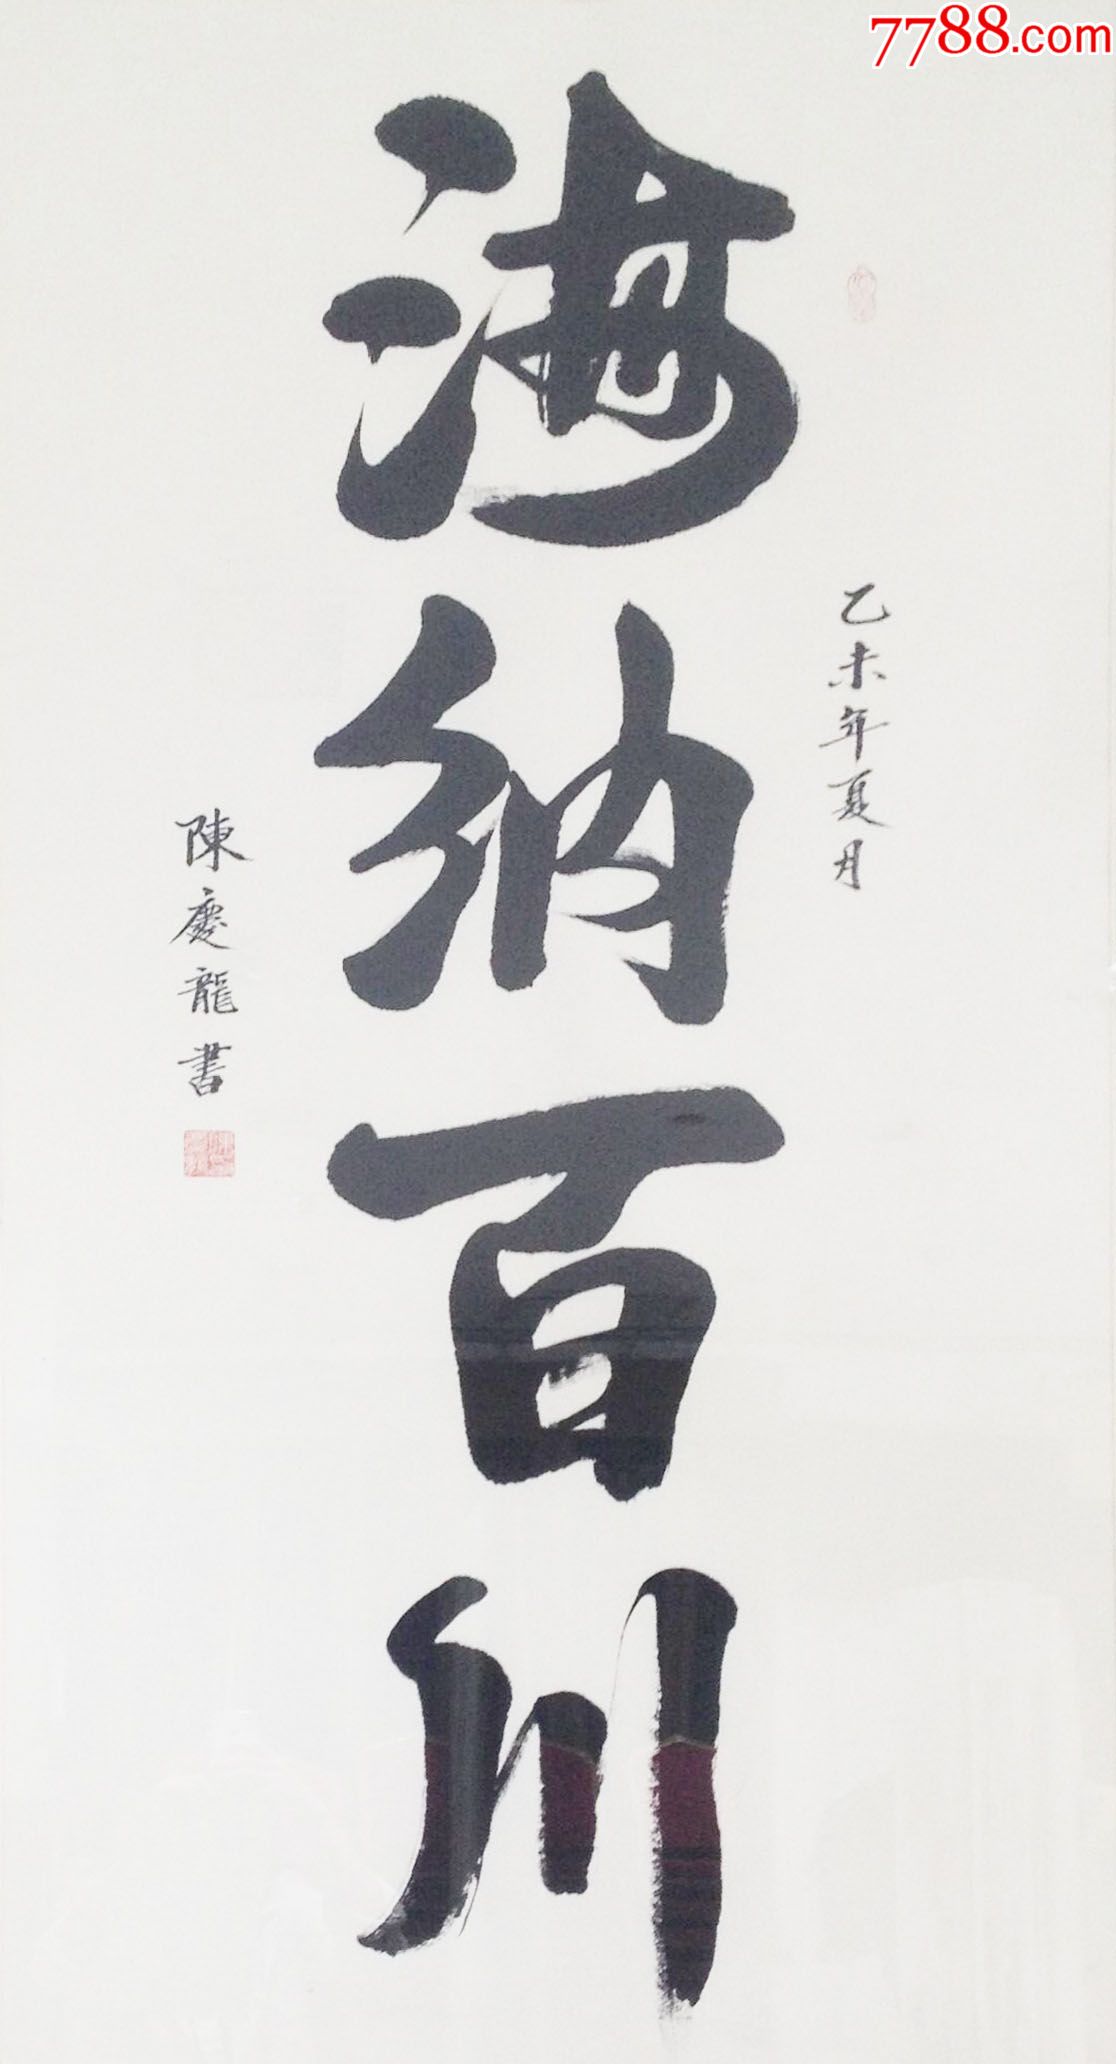 7788.com
乙未年夏月
海纳百川
陳慶龍書